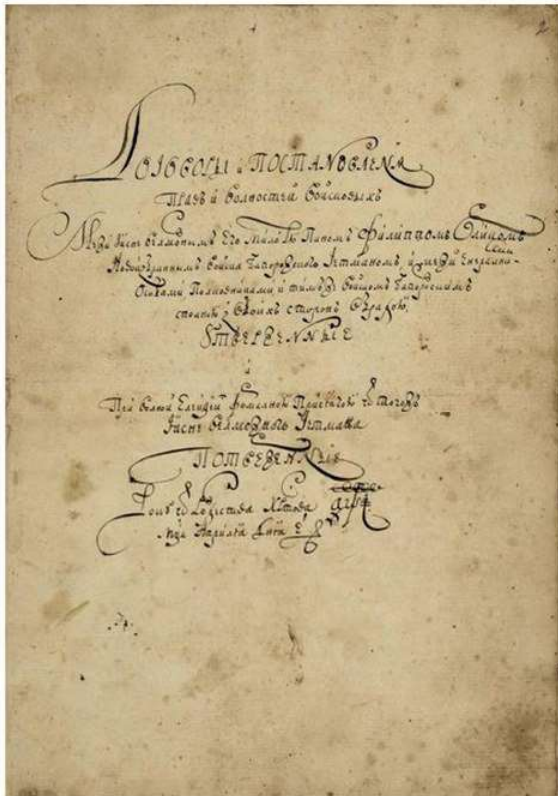 Договоры и Постановленя
Правъ и волностей Войсковыхъ
Межи Ясне велможнымъ Его Милостю Паномъ Филиппомъ Орликомъ
Новоизбраннымъ Войска Запорозского Гетманомъ, и межи Енерални-
Особами Полковниками и тимже Войскомъ Запорозскимъ
сполною з обоихъ сторонъ обрадою
Утверженные
и
При волной Елекціи формалною Присягою от тогожъ
Ясне велможного Гетмана
Потверженные
Року от Рождества Хрстова ҂аѱі
Мця Априля Дня є